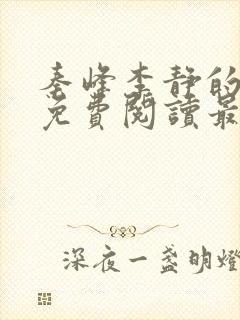 秦峰李静的
免費閱讀最
深夜一盞明燈